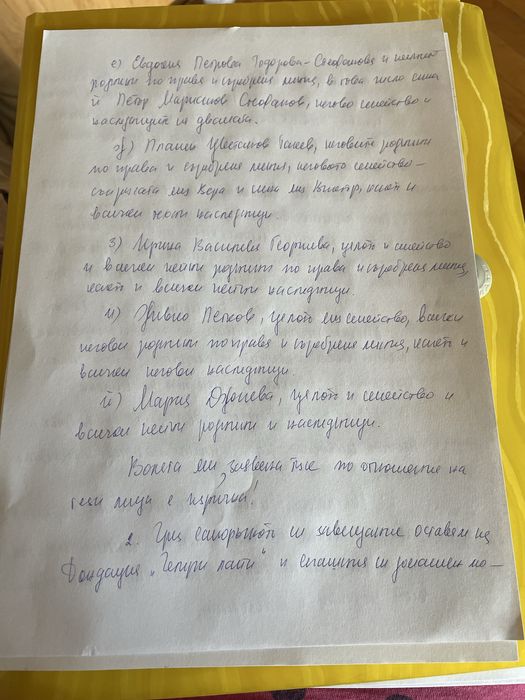 е) Евдокия Петрова Тодорова-Стоианова и нейните
роднини по права и съребрена линия, в това число сина
ѝ Петър Маринов Стоианов, негово семейство и
наследници на двамата.
ж) Пламен Цветанов Ганев, неговите роднини
по права и съребрена линия, неговото семейство –
съпругата му Вера и сина му Виктор, както и
всички техни наследници.
з) Ирина Василева Георгиева, цялото ѝ семейство
и всички нейни роднини по права и съребрена линия,
както и всички нейни наследници.
и) Живко Петков, цялото му семейство, всички
негови роднини по права и съребрена линия, както и
всички негови наследници.
й) Мария Данева, цялото ѝ семейство и
всички нейни роднини и наследници.
Волята ми, заявена тук по отношение на
тези лица е изрична!
2. Чрез саморъчното си завещание оставям на
Фондация „Четири лапи" и спасения си домашен